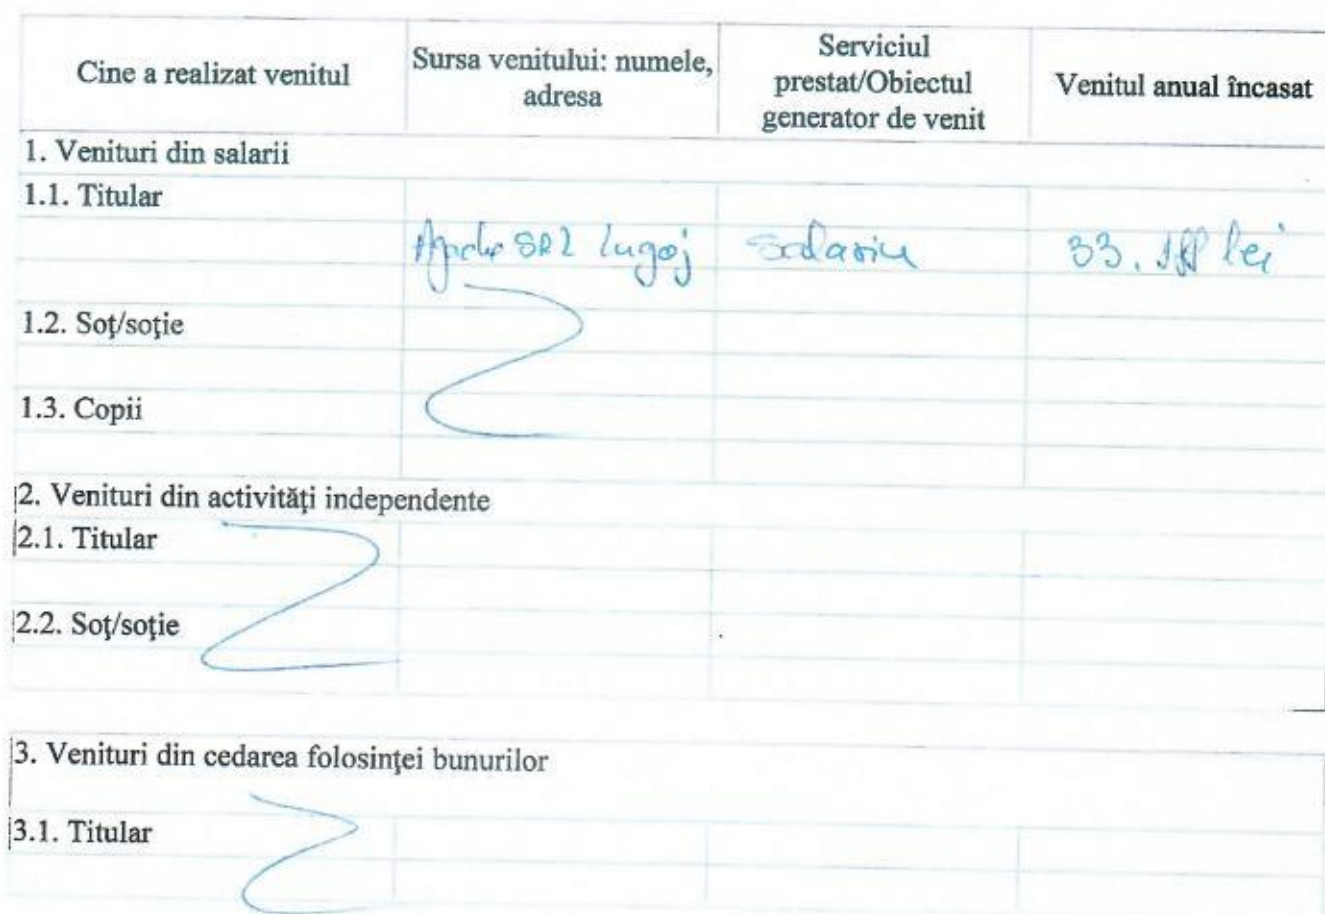 Cine a realizat venitul
Sursa venitului: numele,
adresa
Serviciul
prestat/Obiectul
generator de venit
Venitul anual încasat
1. Venituri din salarii
1.1. Titular
SRL Lugoj
Salariu
lei
1.2. Soţ/soţie
1.3. Copii
2. Venituri din activităţi independente
2.1. Titular
2.2. Soţ/soţie
3. Venituri din cedarea folosinţei bunurilor
3.1. Titular